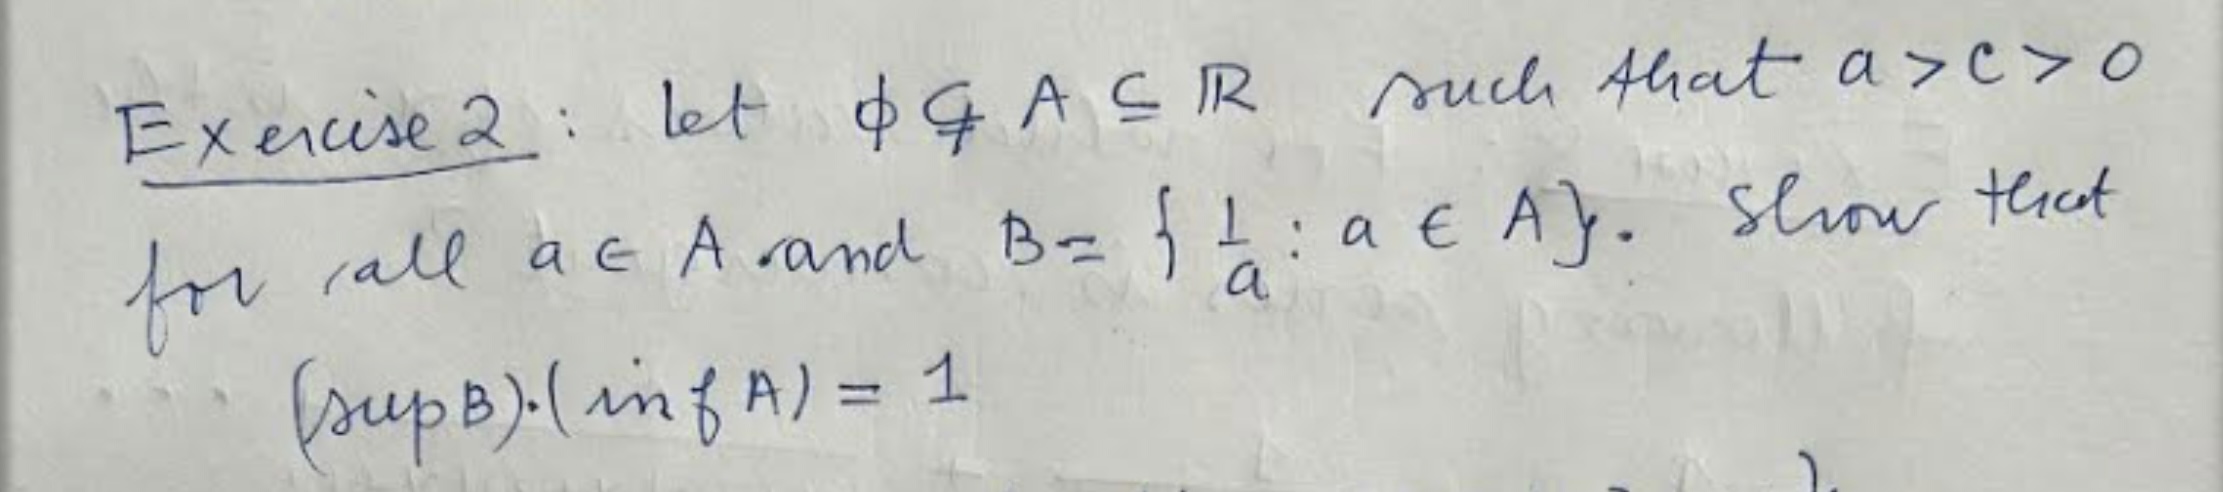 Exercise 2: let ϕ ⊊ A ⊆ ℝ such that a > c > 0
for all a ∈ A and B = { 1/a : a ∈ A}. Show that
(sup B).(inf A) = 1